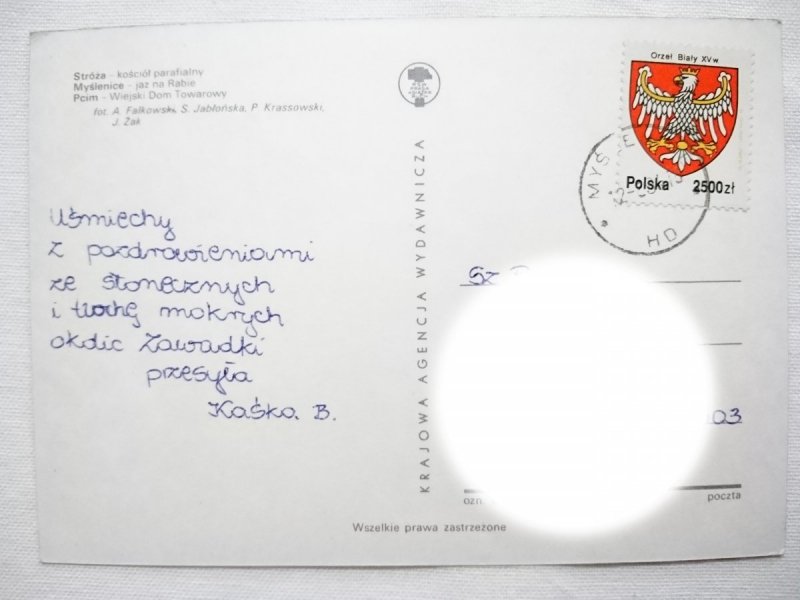 Stróża - kościół parafialny
Myślenice - jaz na Rabie
Pcim - Wiejski Dom Towarowy
fot. A. Falkowski, S. Jabłońska, P. Krassowski,
J. Żak
Uśmiechy
z pozdrowieniami
ze słonecznych
i trochę mokrych
okolic Zawadki
przesyła
Kaśka B.
KRAJOWA AGENCJA WYDAWNICZA
Orzeł Biały XVw
Polska 2500zł
HD
poczta
Wszelkie prawa zastrzeżone